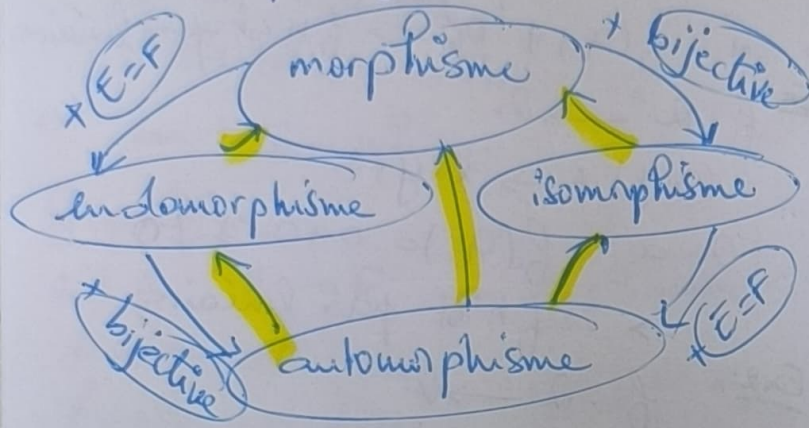 morphisme
+ E=F
+ bijective
endomorphisme
isomorphisme
+ bijective
+ E=F
automorphisme